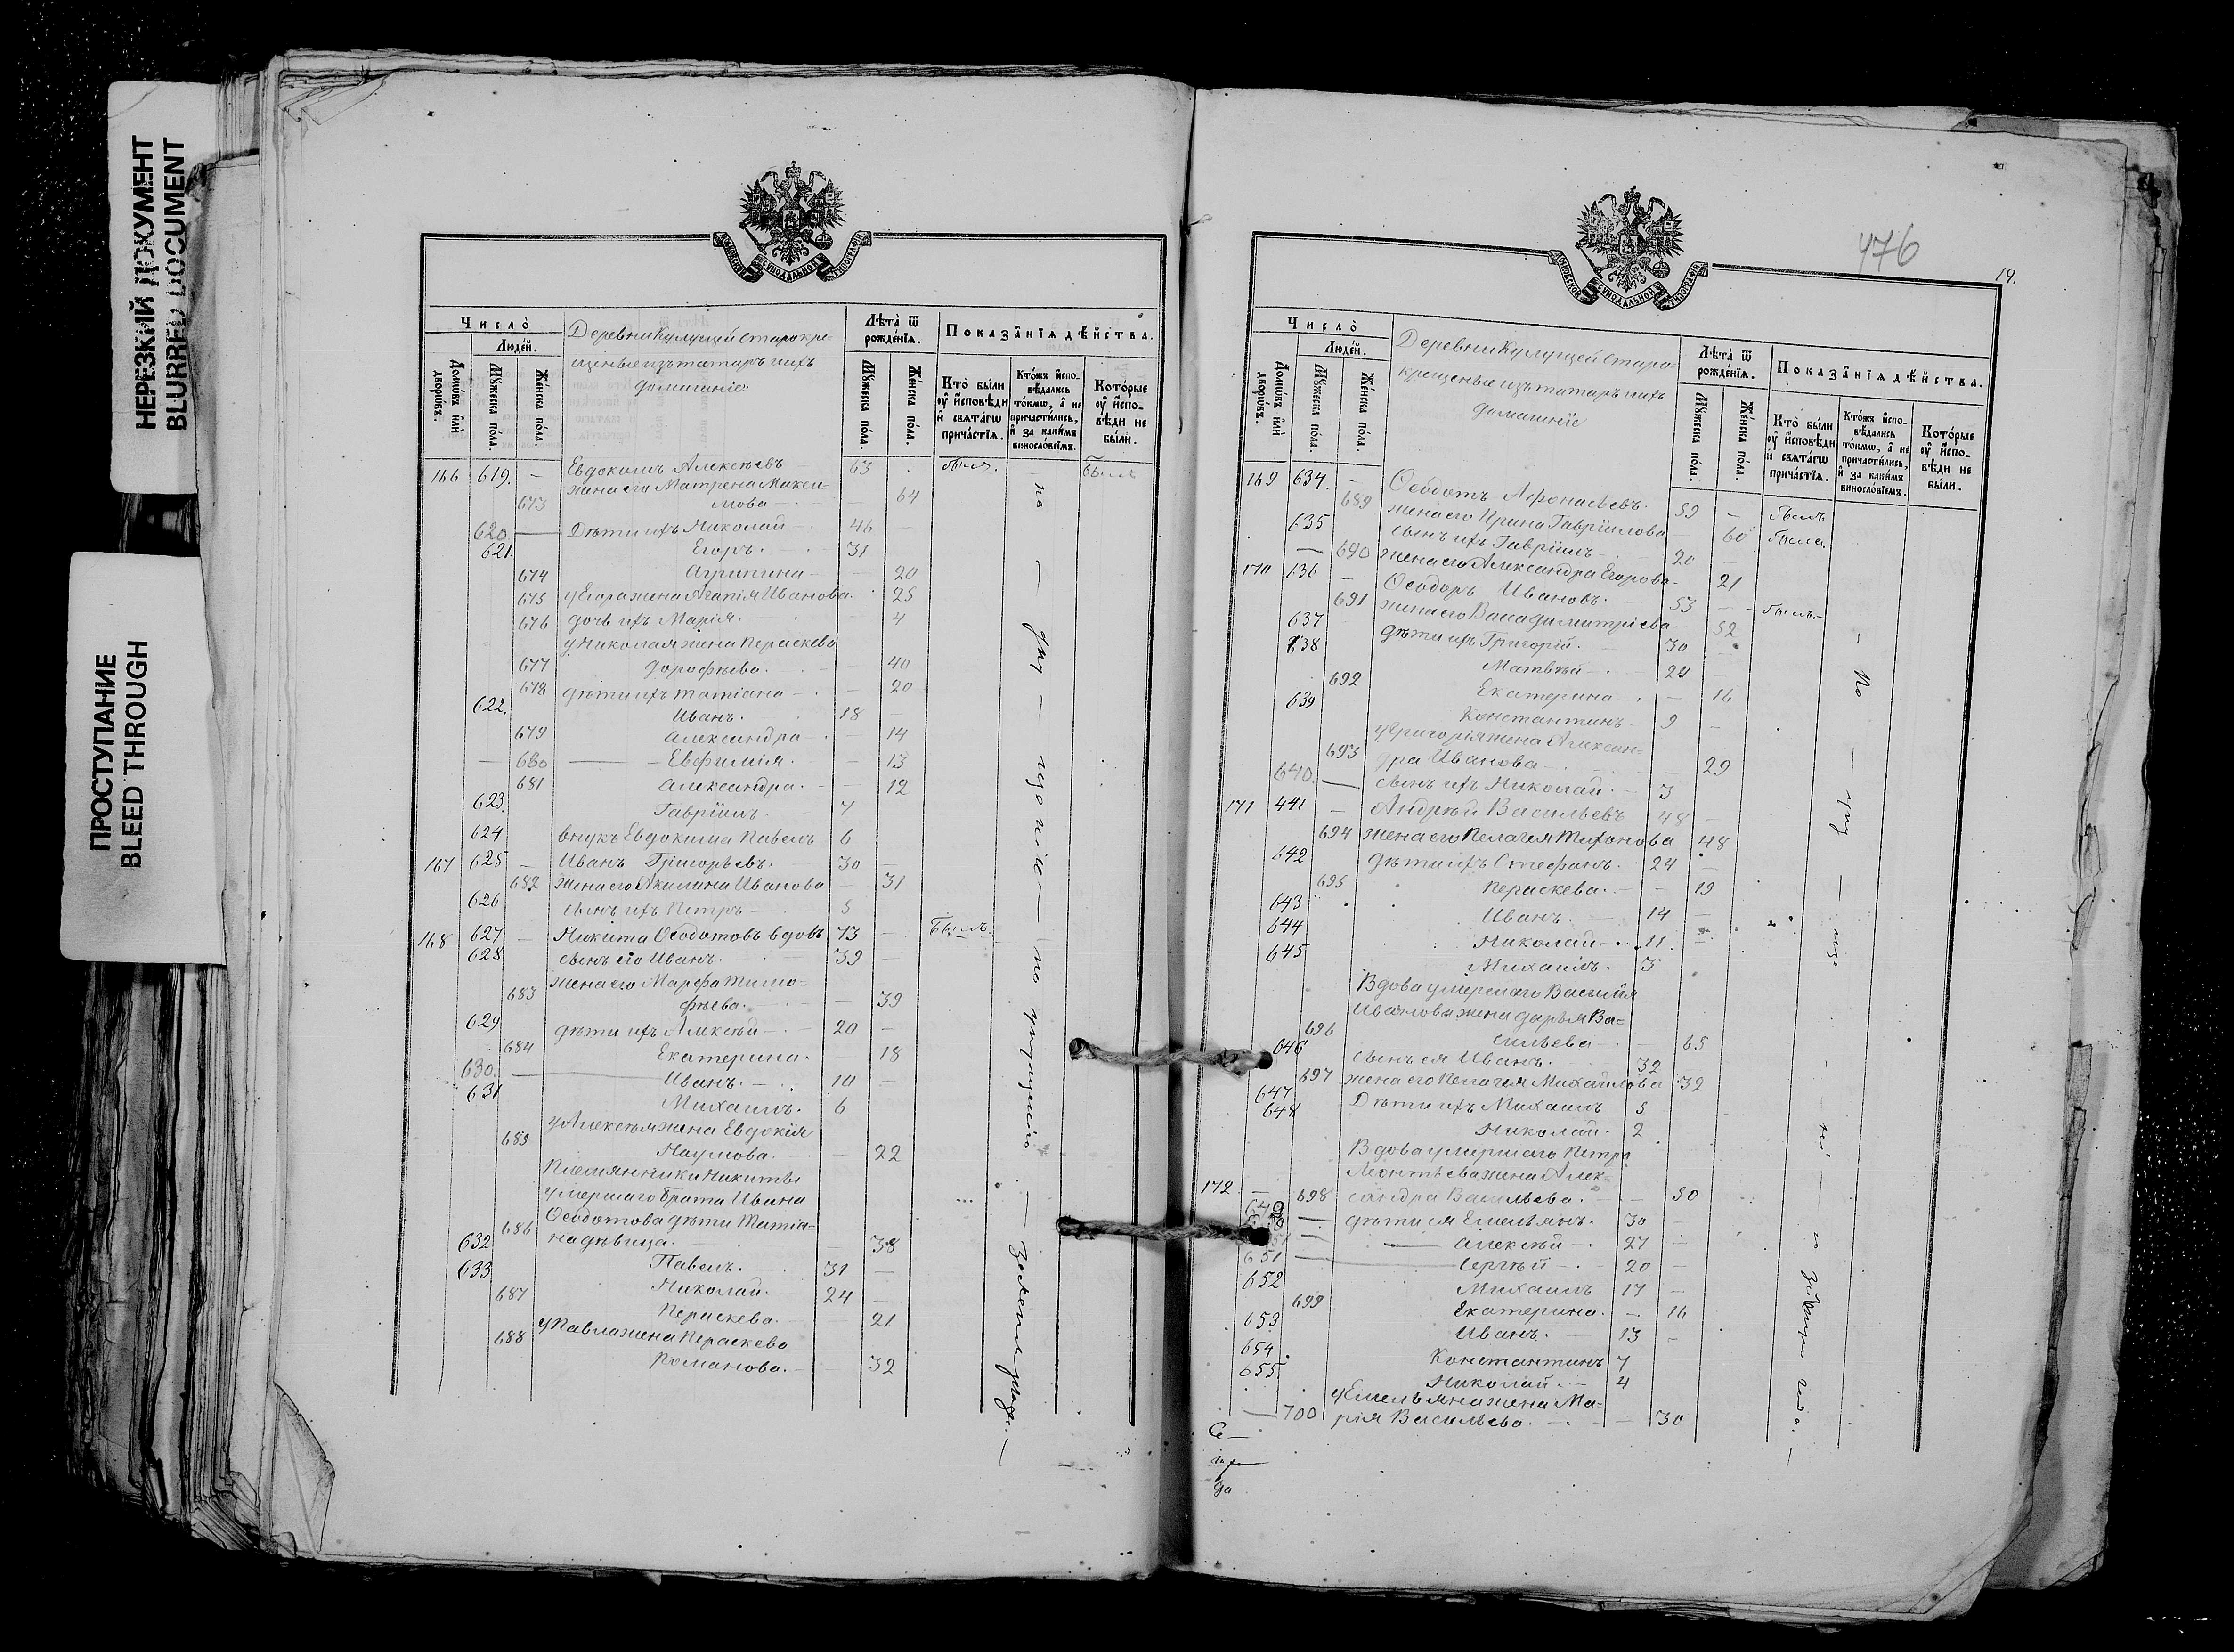 НЕРЕЗКИЙ ДОКУМЕНТ
BLURRED DOCUMENT
ПРОСТУПАНИЕ
BLEED THROUGH
МОСКОВСКОЙ СѴНОДАЛЬНОЙ ТѴПОГРАФІИ
Число̀
Люде́й.
Домѡ́въ и҆лѝ дворѡ́въ.
Мꙋ́жеска по́ла.
Же́нска по́ла.
Деревни Кулущей старокре-
щеные изъ татаръ и ихъ
домашніе:
Лѣта̀ ѿ рожде́нїѧ.
Мꙋ́жеска по́ла.
Же́нска по́ла.
Показа̂нїѧ дѣ́йства.
Кто̀ бы́ли ᲂу҆ и҆́сповѣди и҆ свѧта́гѡ прича́стїѧ.
Кто́жъ и҆спо-вѣ́дались то́кмѡ, а҆ не причасти́лись, и҆ за каки́мъ виносло́вїемъ.
Кото́рые ᲂу҆ и҆́спо-вѣди не бы́ли.
166 619. – Евдокимъ Алексѣевъ 63 былъ. Былъ
жена его Матрена Макси-
673 мова 64
620. – Дѣти ихъ Николай 46
621. Егоръ. 31
674 Агрипина 20
675 у Егора жена Агапія Иванова. 25
676 дочь ихъ Марія. 4
у Николая жена Параскева
677 Дорофѣева. 40
678 дѣти ихъ Татіана 20
622. Иванъ. 18
679 Александра 14
680 Евфимія. 13
681 Александра. 12
623. Гавріилъ. 7
624 внукъ Евдокима Павелъ 6
167 625 – Иванъ Григорьевъ. 30
682 жена его Акилина Иванова 31
626 сынъ ихъ Петръ 5
168 627 – Никита Ѳеодотовъ вдовъ 73 Былъ
628 сынъ его Иванъ. 39
жена его Марфа Тимо-
683 фѣева. 39
629 дѣти ихъ Алексѣй 20
684 Екатерина. 18
630. Иванъ. 10
631 Михаилъ. 6
у Алексѣя жена Евдокія
685 Наумова. 22
Племянники Никиты
умершаго брата Ивана
Ѳеодотова дѣти Татіа-
686 на дѣвица. 38
632 Павелъ. 31
633 Николай. 24
687 Параскева. 21
у Павла жена Параскева
688 Романова. 32
по упущенію
476
19.
МОСКОВСКОЙ СѴНОДАЛЬНОЙ ТѴПОГРАФІИ
Число̀
Люде́й.
Домѡ́въ и҆лѝ дворѡ́въ.
Мꙋ́жеска по́ла.
Же́нска по́ла.
Деревни Кулущей старо-
крещеные изъ татаръ и ихъ
домашніе
Лѣта̀ ѿ рожде́нїѧ.
Мꙋ́жеска по́ла.
Же́нска по́ла.
Показа̂нїѧ дѣ́йства.
Кто̀ бы́ли ᲂу҆ и҆́сповѣди и҆ свѧта́гѡ прича́стїѧ.
Кто́жъ и҆спо-вѣ́дались то́кмѡ, а҆ не причасти́лись, и҆ за каки́мъ виносло́вїемъ.
Кото́рые ᲂу҆ и҆́спо-вѣди не бы́ли.
169 634. – Ѳеодотъ Афонасьевъ. 59 – былъ
689 жена его Ирина Гавріилова 60 была.
635 сынъ ихъ Гавріилъ 20
640 жена его Александра Егорова 21
170 636 – Ѳеодоръ Ивановъ. 53 – былъ.
691 жена его Васса Димитріева 52
637 дѣти ихъ Григорій. 30
638 Матвѣй 24
692 Екатерина 16
639 Константинъ 9
у Григорія жена Алексан-
693 дра Иванова 29
640. – сынъ ихъ Николай. 3
171 441 – Андрей Васильевъ 48
694 жена его Пелагея Тихонова 48
642 дѣти ихъ Стефанъ. 24
695 Параскева. 19
643 Иванъ. 14
644 Николай 11.
645 Михаилъ. 3
Вдова умершаго Василія
Иванова жена Дарья Ва-
696 сильева 65
646 сынъ ея Иванъ. 32
697 жена его Пелагея Михайлова 32
647 Дѣти ихъ Михаилъ 5
648 Николай. 2
Вдова умершаго Петра
Леонтьева жена Алек-
172 – 698 сандра Васильева. 50
649 – дѣти ея Емельянъ. 30
650 Алексѣй 27
651 Сергѣй 20
652 Михаилъ 17
699 Екатерина. 16
653 Иванъ. 13
654 Константинъ 7
655. Николай 4
у Емельяна жена Ма-
700 рія Васильева. 30